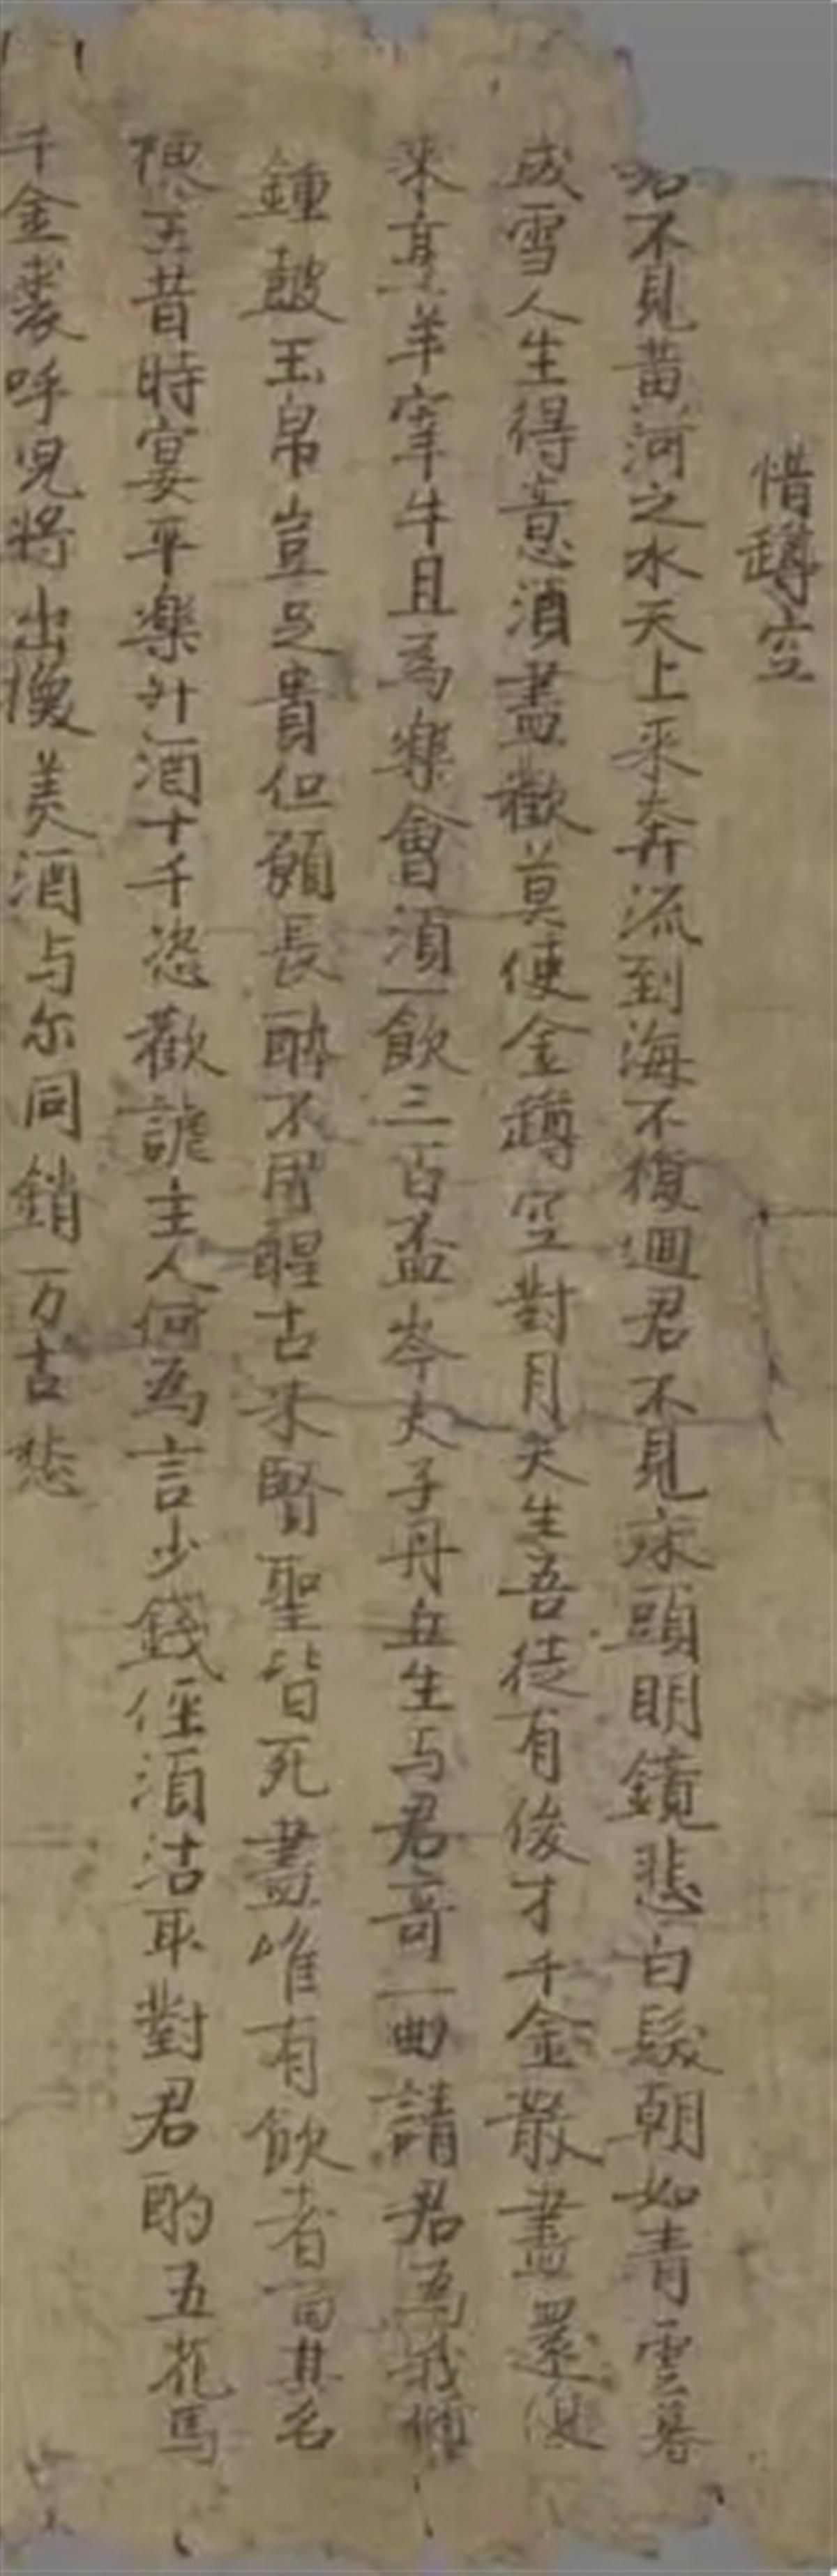 惜罇空
君不見黃河之水天上來奔流到海不復迴君不見床頭明鏡悲白髮朝如青雲暮
成雪人生得意須盡歡莫使金罇空對月天生吾徒有俊才千金散盡還復
來烹羊宰牛且為樂會須一飲三百盃岑夫子丹丘生與君哥一曲請君為我傾
鍾皷玉帛豈足貴但願長醉不用醒古來賢聖皆死盡唯有飲者留其名
陳王昔時宴平樂斗酒十千恣歡謔主人何為言少錢徑須沽取對君酌五花馬
千金裘呼兒將出換美酒与尔同銷万古愁